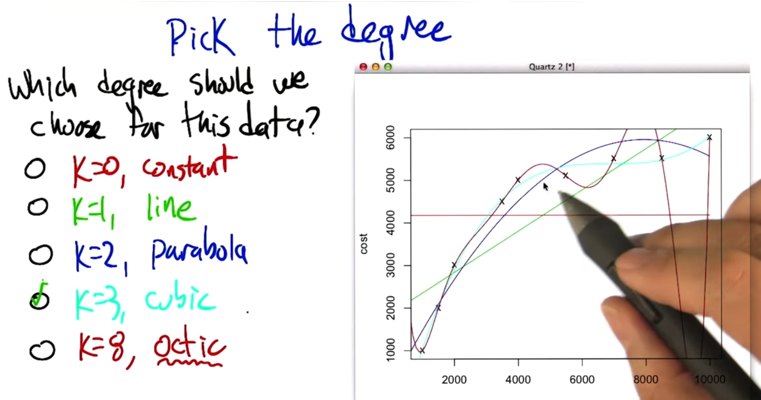 Pick the degree
Which degree should we
choose for this data?
K=0, constant
K=1, line
K=2, parabola
K=3, cubic
K=8, octic
Quartz 2 [*]
cost
6000
5000
4000
3000
2000
1000
2000
4000
6000
8000
10000